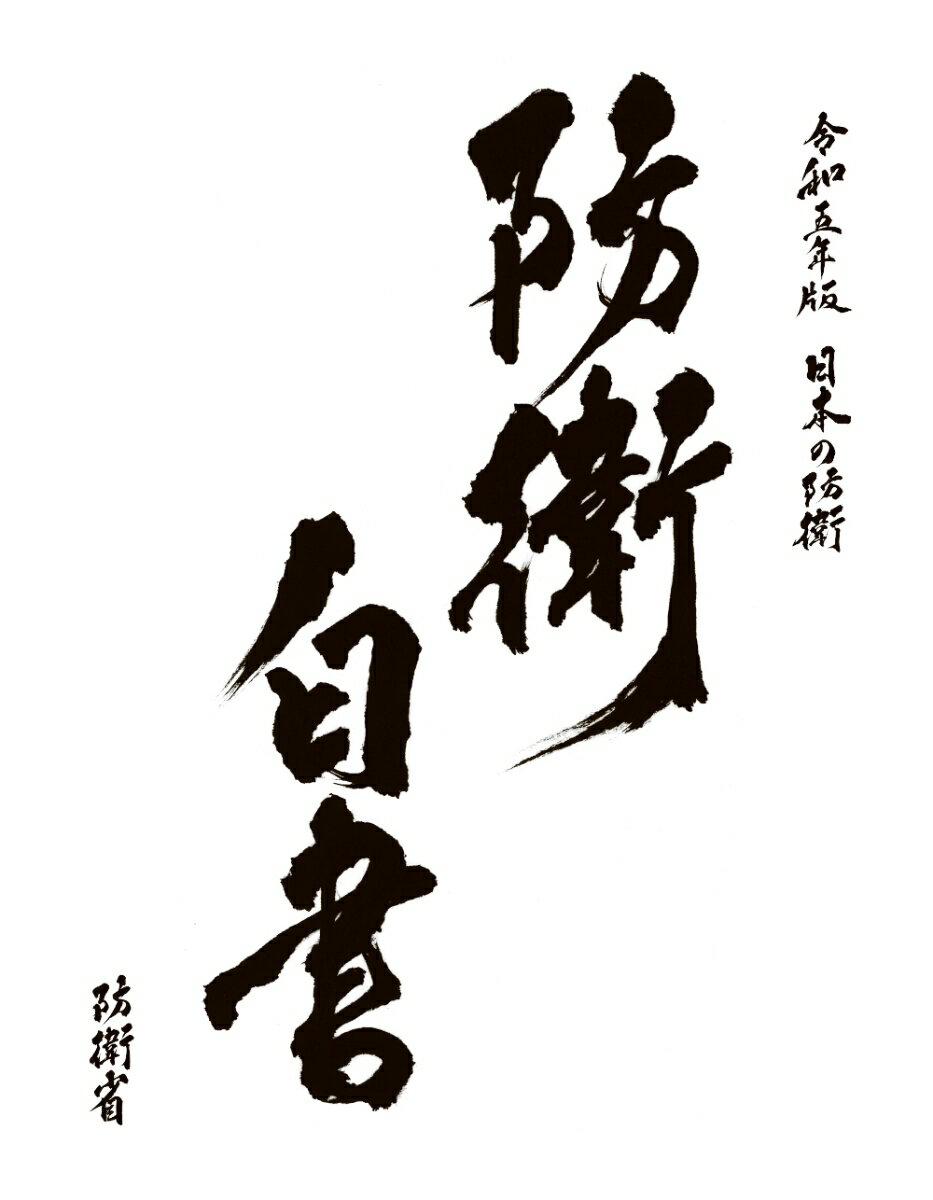 令和五年版 日本の防衛
防衛
白書
防衛省